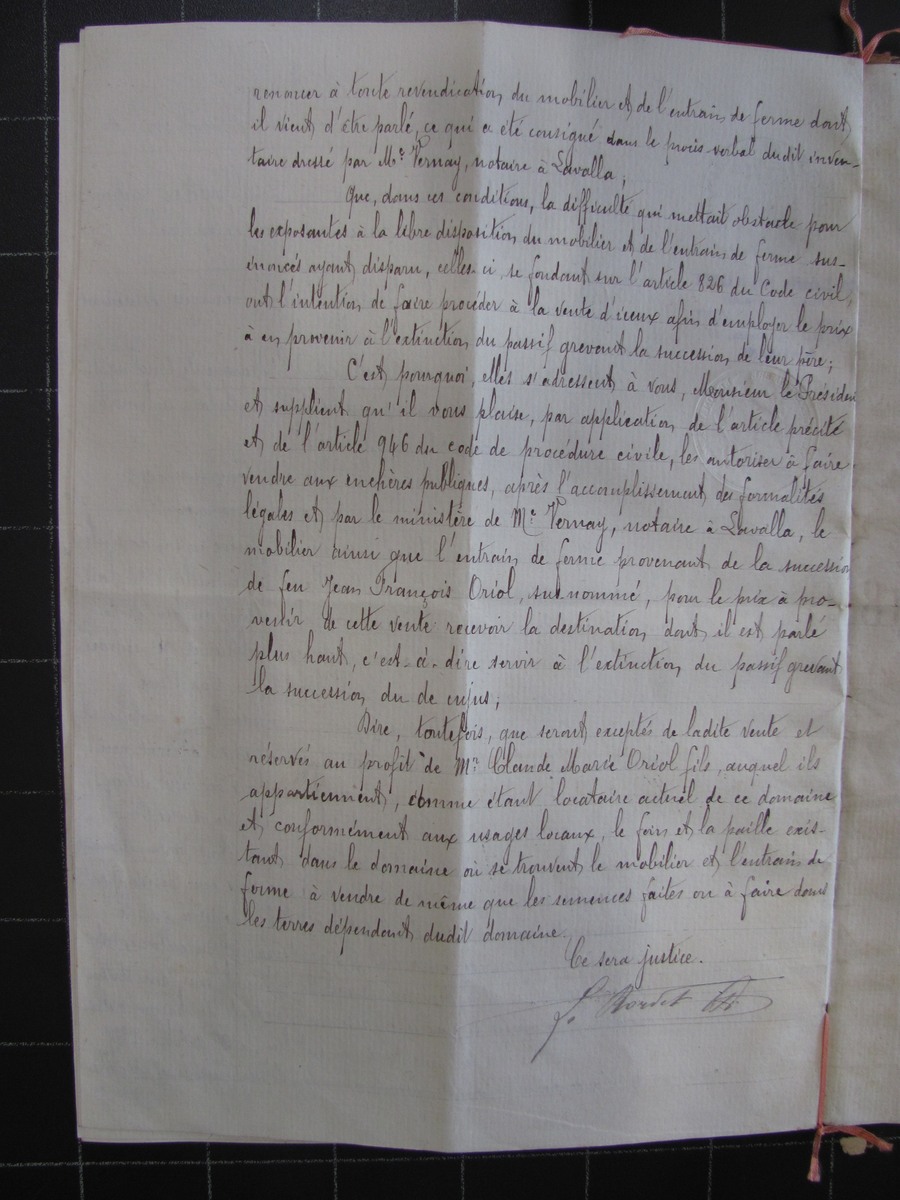 renoncer à toute revendication du mobilier et de l'entrain de ferme dont
il vient d'être parlé, ce qui a été consigné dans le procès verbal dudit inven-
taire dressé par Me Vernay, notaire à Lavalla;
Que, dans ces conditions, la difficulté qui mettait obstacle pour
les exposantes à la libre disposition du mobilier et de l'entrain de ferme sus-
énoncés ayant disparu, celles-ci se fondant sur l'article 826 du Code civil,
ont l'intention de faire procéder à la vente d'iceux afin d'employer le prix
à en provenir à l'extinction du passif grevant la succession de leur père;
C'est pourquoi, elles s'adressent à vous, Monsieur le Président
et supplient qu'il vous plaise, par application de l'article précité
et de l'article 946 du code de procédure civile, les autoriser à faire
vendre aux enchères publiques, après l'accomplissement des formalités
légales et par le ministère de Me Vernay, notaire à Lavalla, le
mobilier ainsi que l'entrain de ferme provenant de la succession
de feu Jean François Oriol, susnommé, pour le prix à pro-
venir de cette vente recevoir la destination dont il est parlé
plus haut, c'est-à-dire servir à l'extinction du passif grevant
la succession du de cujus;
Dire, toutefois, que seront exceptés de ladite vente et
réservés au profit de Mr Claude Marie Oriol fils, auquel ils
appartiennent, comme étant locataire actuel de ce domaine
et conformément aux usages locaux, le foin et la paille exis-
tant dans le domaine où se trouvent le mobilier et l'entrain de
ferme à vendre de même que les semences faites ou à faire dans
les terres dépendant dudit domaine.
Ce sera justice.